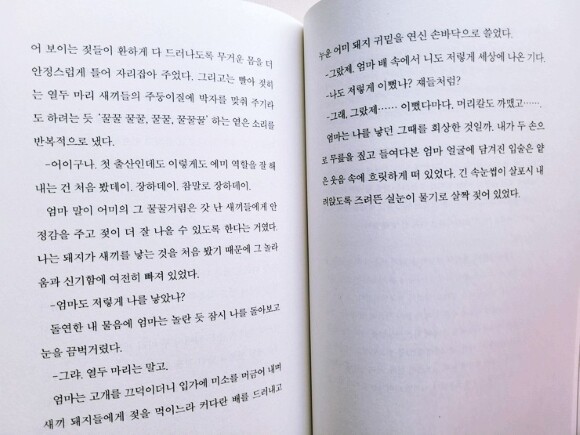 어 보이는 젖들이 환하게 다 드러나도록 무거운 몸을 더
안정스럽게 틀어 자리잡아 주었다. 그리고는 빨아 젖히
는 열두 마리 새끼들의 주둥이질에 박자를 맞춰 주기라
도 하려는 듯 '꿀꿀 꿀꿀, 꿀꿀, 꿀꿀꿀' 하는 옅은 소리를
반복적으로 냈다.
-어이구나. 첫 출산인데도 이렇게도 에미 역할을 잘 해
내는 건 처음 봤데이. 장하데이. 참말로 장하데이.
엄마 말이 어미의 그 꿀꿀거림은 갓 난 새끼들에게 안
정감을 주고 젖이 더 잘 나올 수 있도록 한다는 거였다.
나는 돼지가 새끼를 낳는 것을 처음 봤기 때문에 그 놀라
움과 신기함에 여전히 빠져 있었다.
-엄마도 저렇게 나를 낳았나?
돌연한 내 물음에 엄마는 놀란 듯 잠시 나를 돌아보고
눈을 끔벅거렸다.
-그랴. 열두 마리는 말고.
엄마는 고개를 끄덕이더니 입가에 미소를 머금어 내며
새끼 돼지들에게 젖을 먹이느라 커다란 배를 드러내고
누운 어미 돼지 귀밑을 연신 손바닥으로 쓸었다.
-그랐제. 엄마 배 속에서 니도 저렇게 세상에 나온 기다.
-나도 저렇게 이뻤나? 쟤들처럼?
-그래, 그랐제…… 이뻤다마다. 머리칼도 까맸고…….
엄마는 나를 낳던 그때를 회상한 것일까. 내가 두 손으
로 무릎을 짚고 들여다본 엄마 얼굴에 담겨진 입술은 얕
은 웃음 속에 흐릿하게 떠 있었다. 긴 속눈썹이 살포시 내
려앉도록 즈려뜬 실눈이 물기로 살짝 젖어 있었다.